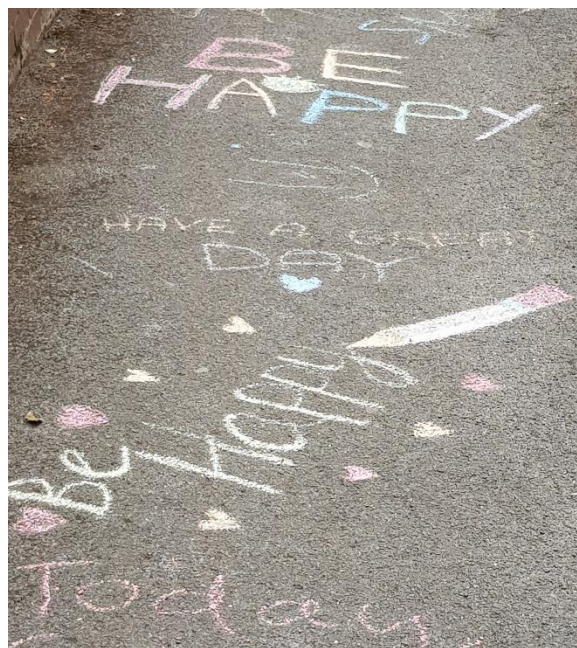 BE
HAPPY
HAVE A GREAT
DaY
Be Happy
Today